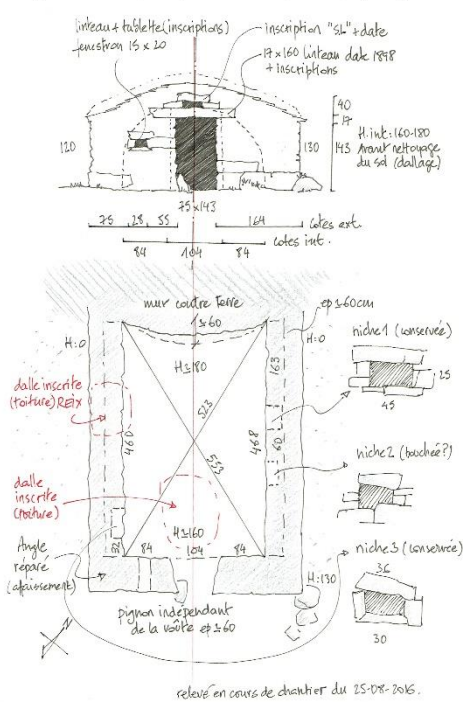 linteau + tablette (inscriptions)
fenestron 15 x 20
inscription "SL" + date
17 x 160 linteau daté 1898
+ inscriptions
120
130
40
17
143
H. int : 160-180
avant nettoyage
du sol (dallage)
75 x 143
75 28 35 164 cotes ext.
84 104 84 cotes int.
mur contre terre
ep ± 60cm
1 ± 60
H:0
H:0
H ± 180
163
dalle inscrite
(toiture) REIX
460
523
553
468
60
dalle
inscrite
(toiture)
H ± 160
84 104 84
Angle
réparé
(affaissement)
H:130
pignon indépendant
de la voûte ep ± 60
niche 1 (conservée)
25
45
niche 2 (bouchée?)
niche 3 (conservée)
36
30
relevé en cours de chantier du 25-08-2016.